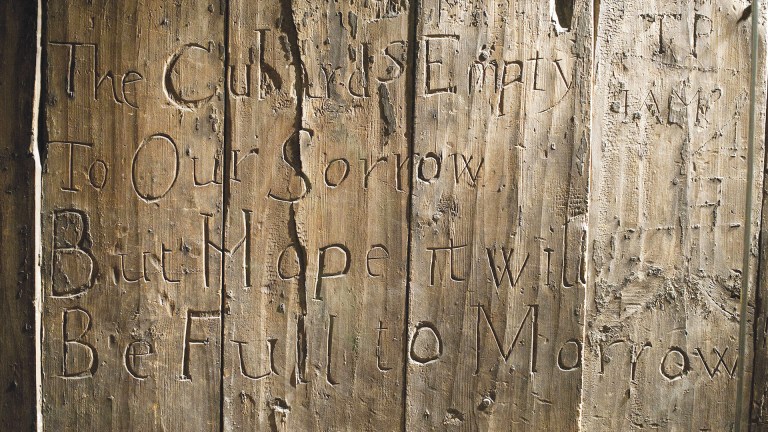 The Cubards Empty
TP
To Our Sorrow
But Hope it will
Be Full to Morrow